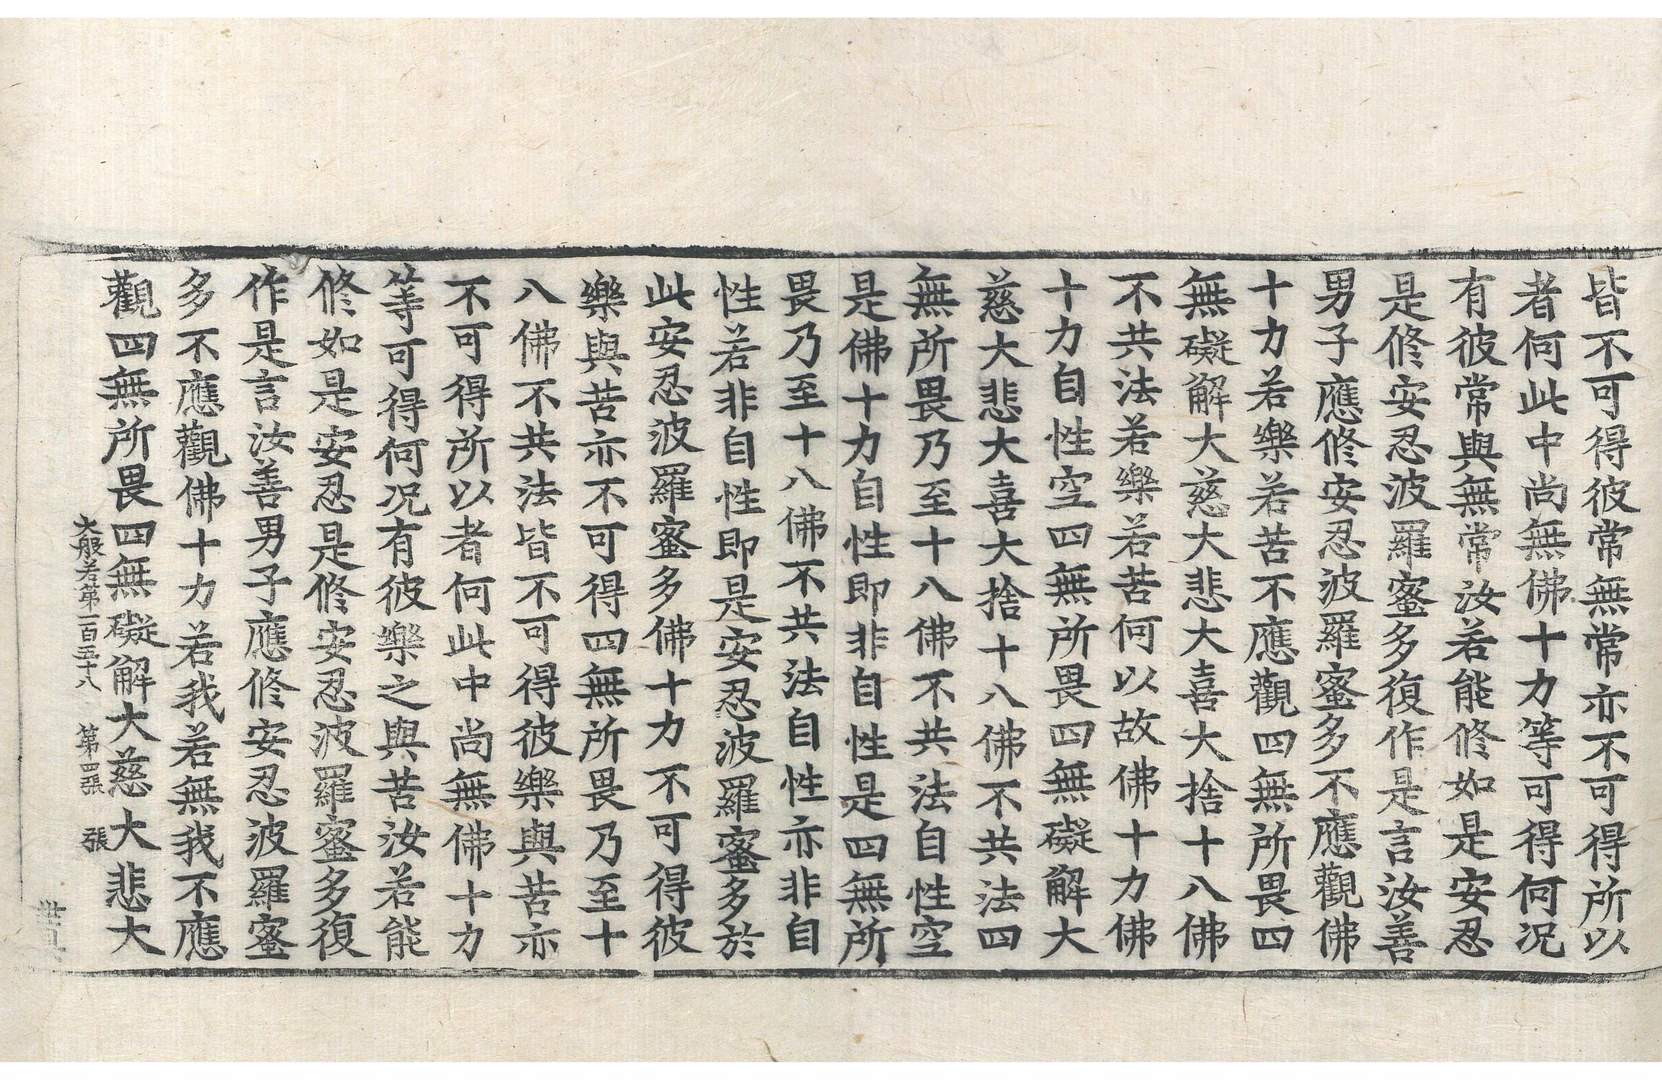 皆不可得彼常無常亦不可得所以
者何此中尚無佛十力等可得何况
有彼常與無常汝若能修如是安忍
是修安忍波羅蜜多復作是言汝善
男子應修安忍波羅蜜多不應觀佛
十力若樂若苦不應觀四無所畏四
無礙解大慈大悲大喜大捨十八佛
不共法若樂若苦何以故佛十力佛
十力自性空四無所畏四無礙解大
慈大悲大喜大捨十八佛不共法四
無所畏乃至十八佛不共法自性空
是佛十力自性即非自性是四無所
畏乃至十八佛不共法自性亦非自
性若非自性即是安忍波羅蜜多於
此安忍波羅蜜多佛十力不可得彼
樂與苦亦不可得四無所畏乃至十
八佛不共法皆不可得彼樂與苦亦
不可得所以者何此中尚無佛十力
等可得何况有彼樂之與苦汝若能
修如是安忍是修安忍波羅蜜多復
作是言汝善男子應修安忍波羅蜜
多不應觀佛十力若我若無我不應
觀四無所畏四無礙解大慈大悲大
大般若第一百五十八 第四張 張